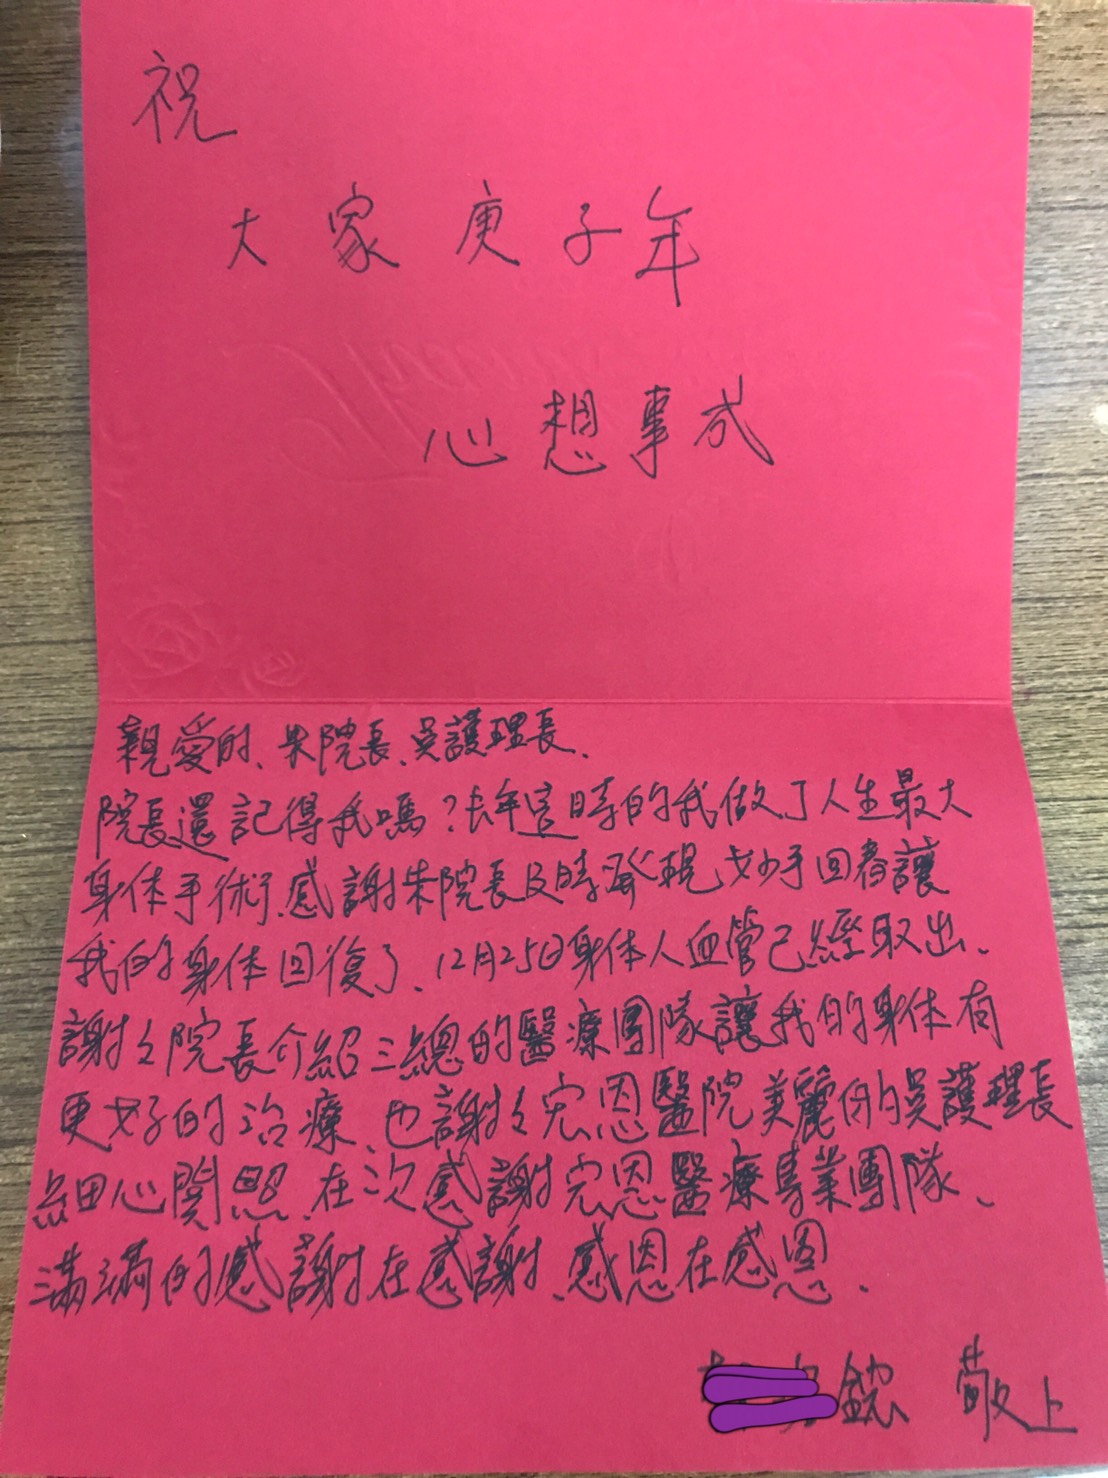 祝
大家庚子年
心想事成
親愛的、朱院長、吳護理長、
院長還記得我嗎？去年這時的我做了人生最大
身体手術、感謝朱院長及時發現妙手回春讓
我的身体回復了、12月25日身体人血管已經取出、
謝々院長介紹三總的醫療團隊讓我的身体有
更好的治療、也謝々宏恩醫院美麗的吳護理長
細心関照、在次感謝宏恩醫療專業團隊、
滿滿的感謝在感謝、感恩在感恩、
敬上